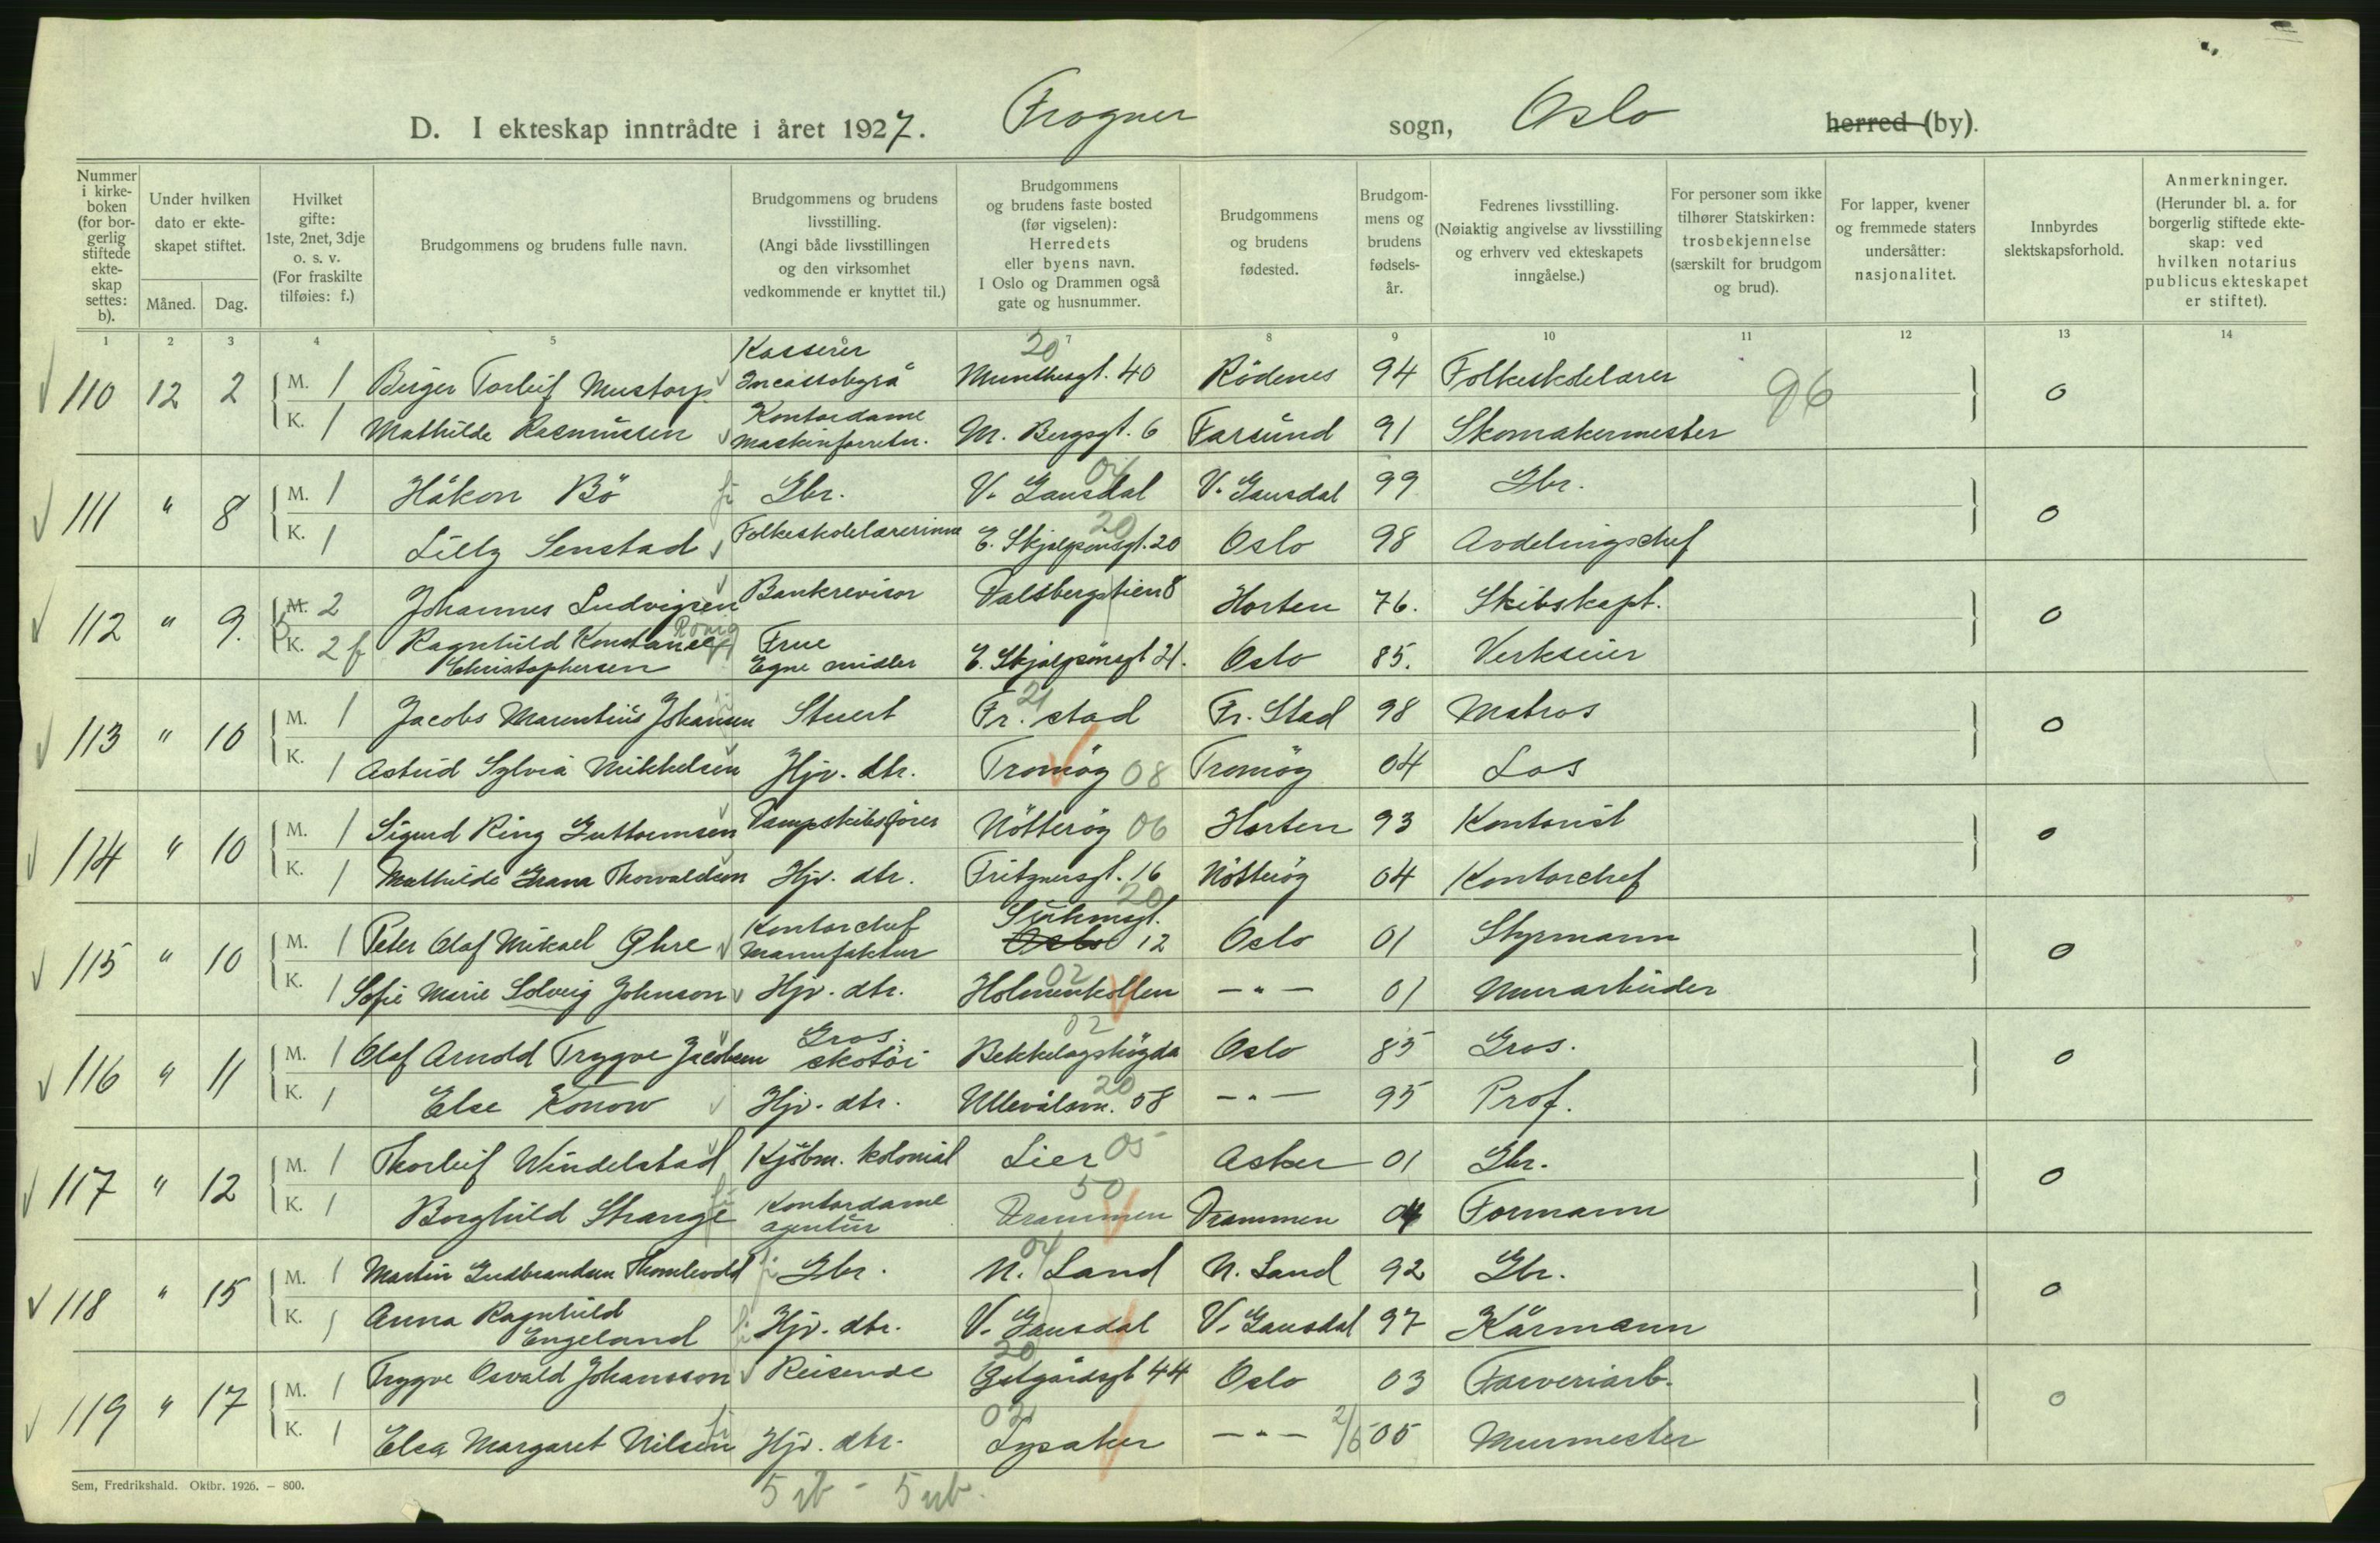 D. I ekteskap inntrådte i året 1927. Frogner sogn, Oslo herred (by).
Nummer i kirkeboken (for borgerlig stiftede ekteskap settes: b).
Under hvilken dato er ekteskapet stiftet.
Måned. Dag.
Hvilket gifte: 1ste, 2net, 3dje o. s. v. (For fraskilte tilføies: f.)
Brudgommens og brudens fulle navn.
Brudgommens og brudens livsstilling. (Angi både livsstillingen og den virksomhet vedkommende er knyttet til.)
Brudgommens og brudens faste bosted (før vigselen): Herredets eller byens navn. I Oslo og Drammen også gate og husnummer.
Brudgommens og brudens fødested.
Brudgommens og brudens fødselsår.
Fedrenes livsstilling. (Nøiaktig angivelse av livsstiling og erhverv ved ekteskapets inngåelse.)
For personer som ikke tilhører Statskirken: trosbekjennelse (særskilt for brudgom og brud).
For lapper, kvener og fremmede staters undersåtter: nasjonalitet.
Innbyrdes slektskapsforhold.
Anmerkninger. (Herunder bl. a. for borgerlig stiftede ekteskap: ved hvilken notarius publicus ekteskapet er stiftet).
1 2 3 4 5 7 8 9 10 11 12 13 14
110 12 2 M. 1 Birger Torleif Mustorp Kasserer Incassobyrå 20 Munthesgt. 40 Rödenes 94 Folkeskolelærer 96 0
K. 1 Mathilde Rasmussen Kontordame Maskinforretn. M. Bergsgt. 6 Farsund 91 Skomakermester
111 " 8 M. 1 Håkon Bö Gbr. 04 V. Gausdal V. Gausdal 99 Gbr. 0
K. 1 Lilly Senstad Folkeskolelærerinne 20 E. Skjalgsönsgt. 20 Oslo 98 Avdelingschef
112 " 9. M. 2 Johannes Ludvigsen Bankrevisor Valsbergstien 8 Horten 76. Skibskapt. 0
K. 2 f Ragnhild Konstance Rönig Christophersen Frue Egne midler E. Skjalgsönsgt 21. Oslo 85. Verkseier
113 " 10 M. 1 Jacobs Marentius Johansen Stuert 21 Fr. stad Fr. Stad 98 Matros 0
K. 1 Astrid Sylvia Mikkelsen Hjv. dtr. Tromöy 08 Tromöy 04 Los
114 " 10 M. 1 Sigurd Ring Guttormsen Dampskibsförer Nötteröy 06 Horten 93 Kontorist 0
K. 1 Mathilde Grana Thorvaldsen Hjv. dtr. Fritznersgt. 16 Nötteröy 04 Kontorchef
115 " 10 M. 1 Peter Olaf Mikael Ghre Kontorchef Manufaktur 20 Suhmsgt. Oslo 12 Oslo 01 Styrmann 0
K. 1 Sofie Marie Solveig Johnson Hjv. dtr. 02 Holmenkollen — " — 01 Murarbeider
116 " 11 M. 1 Olaf Arnold Trygve Jacobsen Gros. skotöi 02 Bekkelagshögda Oslo 85 Gros. 0
K. 1 Else Konow Hjv. dtr. 20 Ullevålsvn. 58 — " — 95 Prof.
117 " 12 M. 1 Thorleif Windelstad Kjöbm. kolonial Lier 05 Asker 01 Gbr. 0
K. 1 Borghild Strange Kontordame agentur 50 Drammen Drammen 04 Formann
118 " 15 M. 1 Martin Gudbrandsen Thomlevold Gbr. 04 N. Land N. Land 92 Gbr. 0
K. 1 Anna Ragnhild Engeland Hjv. dtr. V. Gausdal V. Gausdal 97 Kårmann
119 " 17 M. 1 Trygve Osvald Johansson Reisende 20 Östgårdsgt 44 Oslo 03 Farveriarb. 0
K. 1 Elsa Margaret Nilsen Hjv. dtr. 02 Lysaker — " — 2/5 05 Murmester
Sem, Fredrikshald. Oktbr. 1926. – 800.